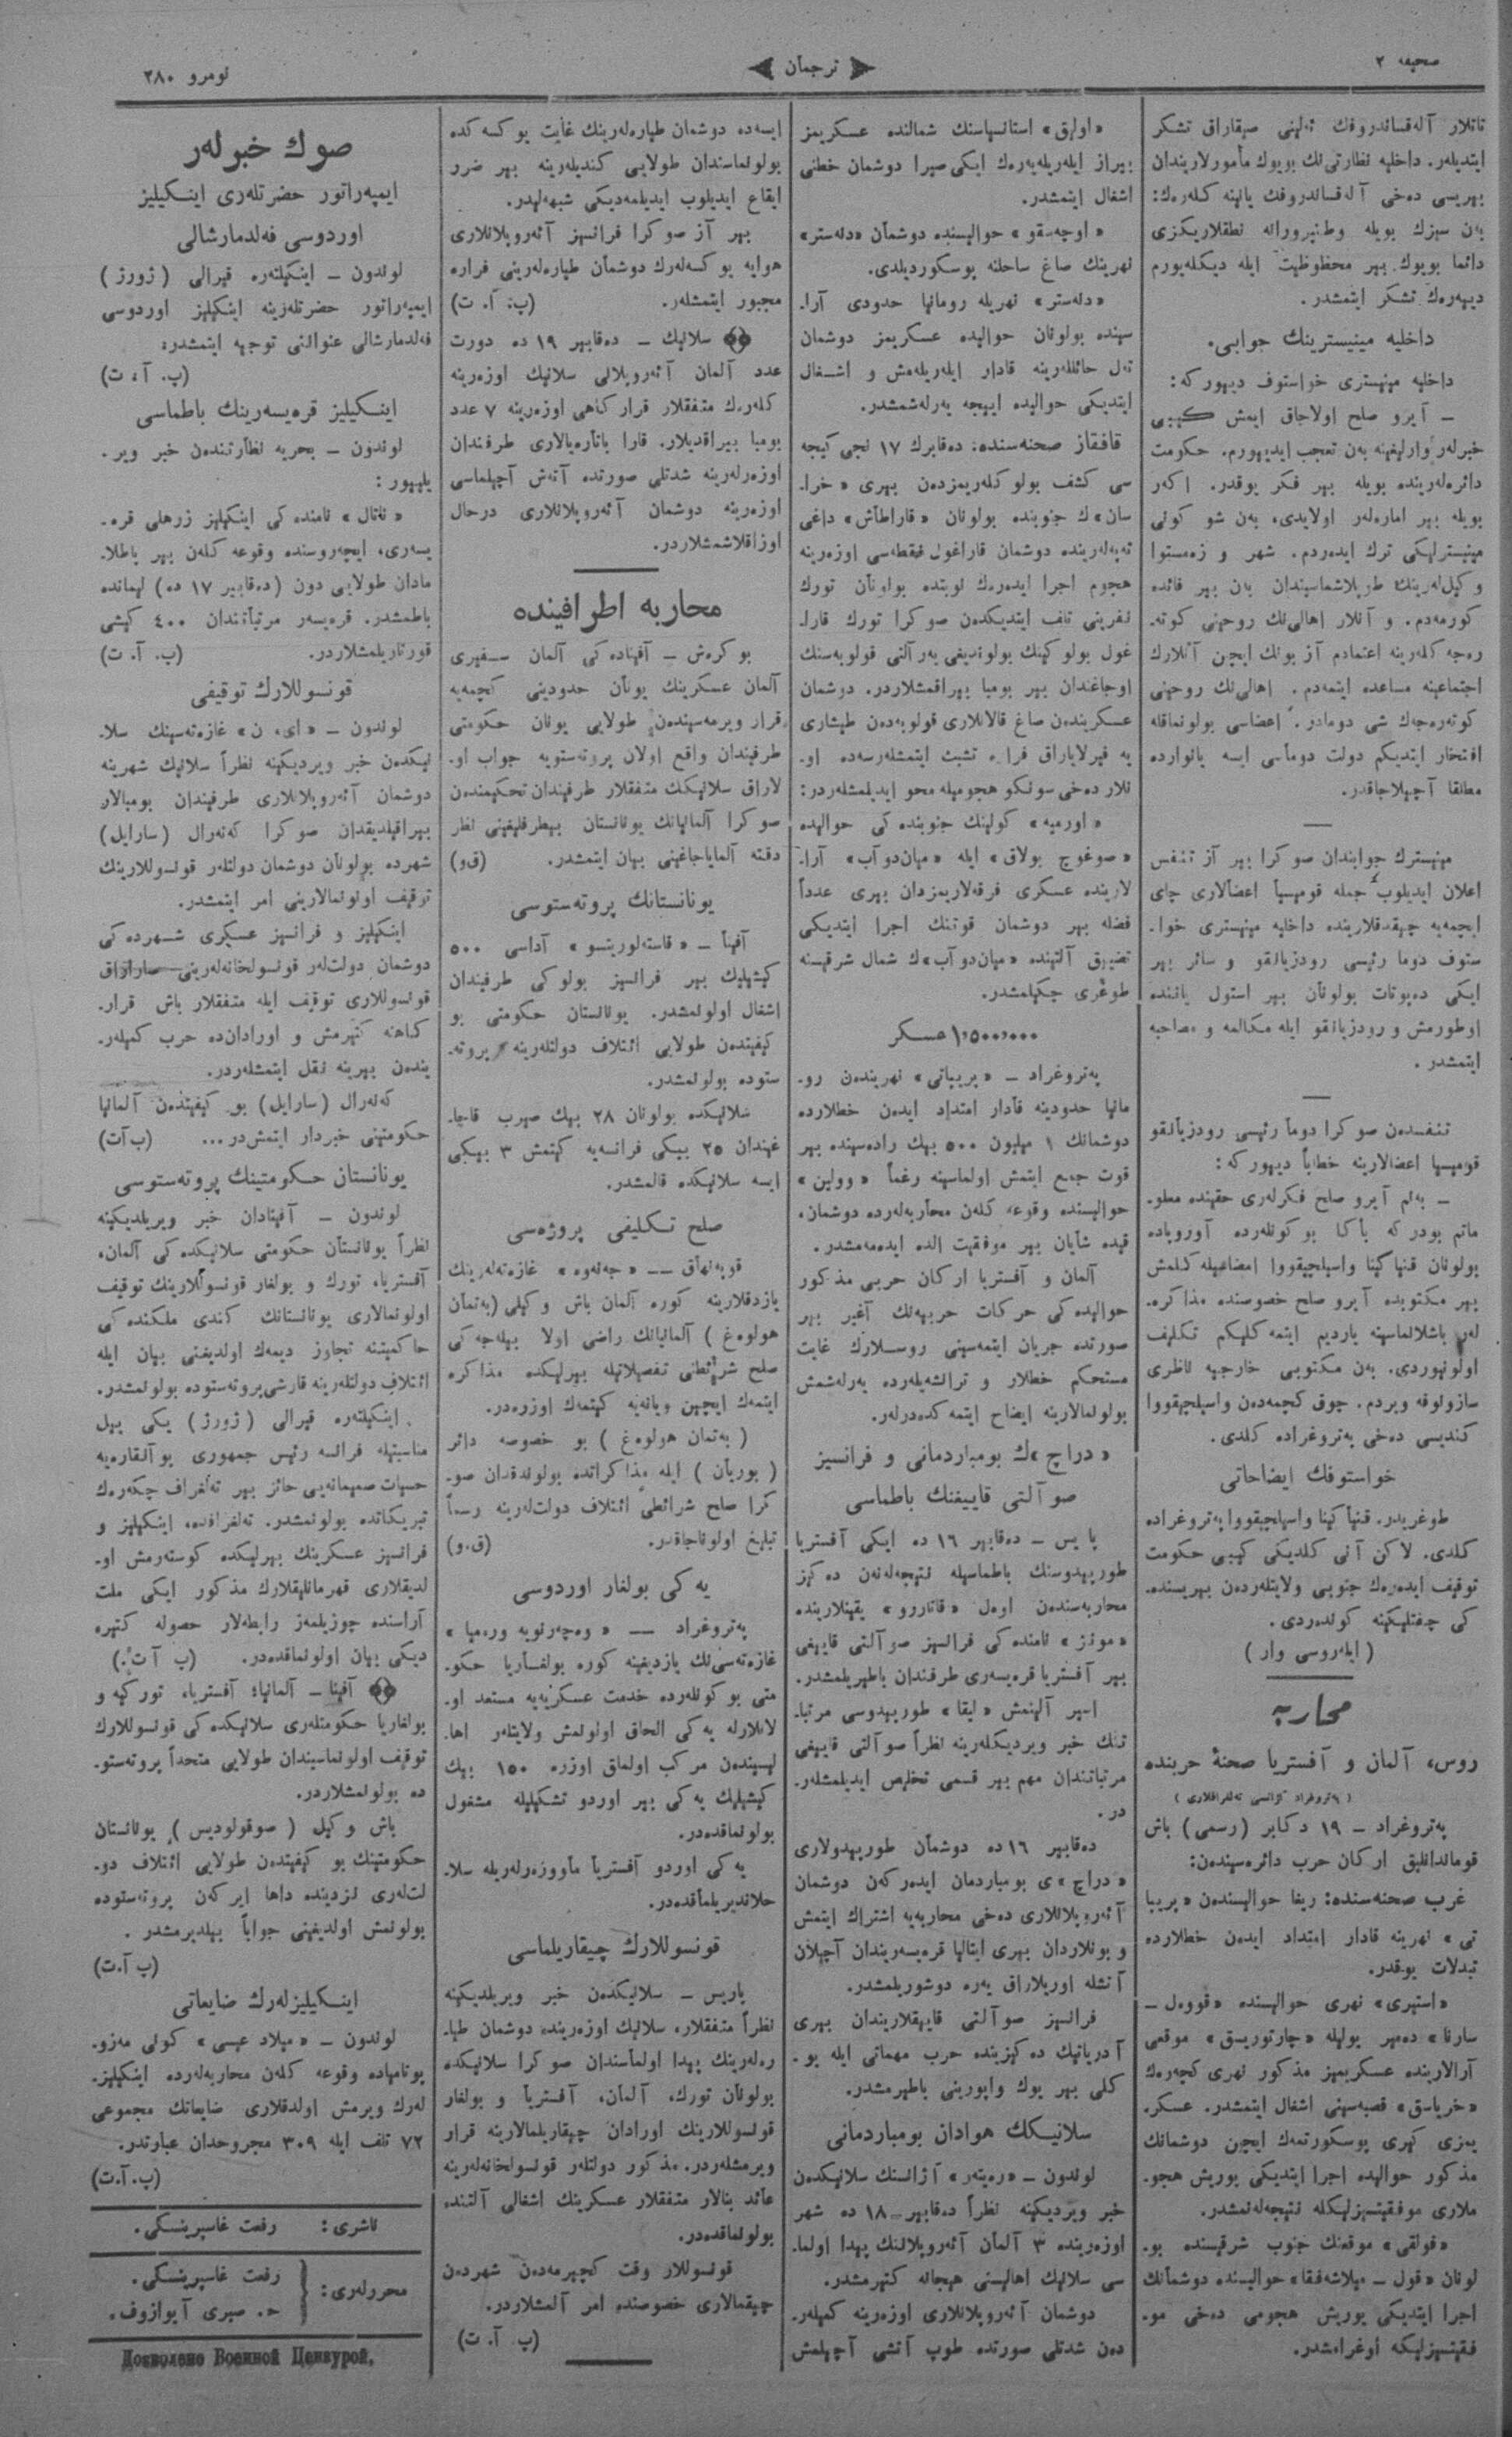 صحیفه ۲
ترجمان
نومرو ۲۸۰
ایتدیلەر. داخلیه نظارتی‌نك بویوك مأمورلاریندان
بیریسی دەخی آلەقساندروفك یانینه کلەرەك:
بەن سیزك بویله وطنپرورانه نطقلاریکزی
دائما بویوك بیر محظوظیت ایله دیکلەیورم
دییەرەك تشکر ایتمشدر.
داخلیه مینیسترینك جوابی.
داخلیه مینیستری خواستوف دییورکه:
ـ آیرو صلح اولاجاق ایمش کیبی
خبرلەر وارلیغینه بەن تعجب ایدییورم. حکومت
دائرەلەرینده بویله بیر فکر یوقدر. اکەر
بویله بیر امارەلەر اولایدی، بەن شو کونی
مینیسترلیکی ترك ایدەردم. شهر و زەمستوا
افتخار ایتدیکم دولت دوماسی ایسه یانوارده
مطلقا آچیلاجاقدر.
مینیسترك جوابندان صوکرا بیر آز تنفس
اعلان ایدیلوب جمله قومیسیا اعضالاری چای
ایچمەیه چیقدقلارینده داخلیه مینیستری خوا-
ستوف دوما رئیسی رودزیانقو و سائر بیر
ایکی دەپوتات بولونان بیر استول یاننده
اوطورمش و رودزیانقو ایله مکالمه و مصاحبه
ایتمشدر.
تنفسدن صوکرا دوما رئیسی رودزیانقو
قومیسیا اعضالارینه خطاباً دییورکه:
ـ بەنم آیرو صلح فکرلەری حقینده معلو-
ماتم بودرکه بأکا بو کونلەرده آوروپاده
بولونان قنیاکینا واسیلچیقووا امضاسیله کلمش
بیر مکتوبده آیرو صلح خصوصنده مذاکرە-
لەر باشلانماسینه یاردیم ایتمەکلیکم تکلیف
اولونیوردی. بەن مکتوبی خارجیه ناظری
سازونوفه ویردم. چوق کچمەدەن واسیلچیقووا
کندیسی دەخی پەتروغراده کلدی.
خواستوفك ایضاحاتی
طوغریدر. قنیاکینا واسیلچیقووا پەتروغراده
کلدی. لاکن آنی کلدیکی کیبی حکومت
توقیف ایدەرەك جنوبی ولایتلەردەن بیریسنده-
کی چفتلیکینه کوندەردی.
(ایلەروسی وار)
محاربه
روس، آلمان و آفستریا صحنهٔ حربنده
(پەتروغراد آژانسی تەلغرافلاری)
پەتروغراد ـ ۱۹ دکابر (رسمی) باش
قوماندانلیق ارکان حرب دائرەسیندەن:
غرب صحنەسنده: ریغا حوالیسندەن «پریپا
تی» نهرینه قادار امتداد ایدەن خطلارده
تبدلات یوقدر.
«استیری» نهری حوالیسنده «قووەل ـ
سارنا» دەمیر یولیله «چارتوریسق» موقعی
آرالارینده عسکریمیز مذکور نهری کچەرەك
«خریاسق» قصبەسینی اشغال ایتمشدر. عسکر-
یمزی کیری پوسکورتمەك ایچون دوشمانك
مذکور حوالیده اجرا ایتدیکی یوریش هجو-
ملاری موفقیتسیزلیکله نتیجەلەنمشدر.
«قولقی» موقعنك جنوب شرقیسنده بو-
اجرا ایتدیکی یوریش هجومی دەخی مو-
فقیتسیزلیکه اوغرامشدر.
«اولیق» استانسیاسنك شمالنده عسکریمز
بیراز ایلەریلەیەرەك ایکی صیرا دوشمان خطنی
اشغال ایتمشدر.
«اوچەسقو» حوالیسنده دوشمان «دنەستر»
نهرینك صاغ ساحلنه پوسکوردیلدی.
«دنەستر» نهریله رومانیا حدودی آرا-
سینده بولونان حوالیده عسکریمز دوشمان
تەل حائللەرینه قادار ایلەریلەمش و اشغال
ایتدیکی حوالیده اییجه یەرلەشمشدر.
قافقاز صحنەسنده: دەقابرك ۱۷ نجی کیجە
سی کشف بولوکلەریمزدەن بیری «خرا-
سان»ك جنوبنده بولونان «قاراطاش» داغی
تەپەلەرینده دوشمان قاراغول نقطەسی اوزەرینه
هجوم اجرا ایدەرەك نوبتده بولونان تورك
نفرینی تلف ایتدیکدەن صوکرا تورك قارا-
اوجاغندان بیر بومبا بیراقمشلاردر. دوشمان
عسکریندەن صاغ قالانلاری قولوبەدەن طیشاری
نلار دەخی سونکو هجومیله محو ایدیلمشلەردر:
«اورمیه» کولینك جنوبنده کی حوالیده
«صوغوج بولاق» ایله «میان‌دوآب» آرا-
لارینده عسکری فرقەلاریمزدان بیری عدداً
فضله بیر دوشمان قوتنك اجرا ایتدیکی
تضییق آلتینده «میان‌دوآب»ك شمال شرقیسنه
طوغری چکیلمشدر.
۱٫۵۰۰٫۰۰۰ عسکر
پەتروغراد ـ «پریپاتی» نهریندەن رو-
مانیا حدودینه قادار امتداد ایدەن خطلارده
دوشمانك ۱ میلیون ۵۰۰ بیك رادەسینده بیر
قوت جمع ایتمش اولماسینه رغماً «وولین»
حوالیسنده وقوعه کلەن محاربەلەرده دوشمان،
قیده شایان بیر موفقیت الده ایدەمەمشدر.
آلمان و آفستریا ارکان حربی مذکور
حوالیده کی حرکات حربیەنك آغیر بیر
صورتده جریان ایتمەسینی روسلارك غایت
مستحکم خطلار و ترانشەیلەرده یەرلەشمش
بولونمالارینه ایضاح ایتمەکدەدرلەر.
«دراچ»ك بومباردمانی و فرانسیز
صو آلتی قاییغنك باطماسی
پاریس ـ دەقابیر ۱۶ ده ایکی آفستریا
طورپیدوسنك باطماسیله نتیجەلەنەن دەکیز
محاربەسندەن اوەل «قاتارو» یقینلارینده
«مونژ» نامنده کی فرانسیز صو آلتی قاییغی
بیر آفستریا قرەیسەری طرفندان باطیریلمشدر.
اسیر آلینمش «لیقا» طورپیدوسی مرتبا-
تنك خبر ویردیکلەرینه نظراً صو آلتی قاییغی
مرتباتندان مهم بیر قسمی تخلیص ایدیلمشلەر-
در.
دەقابیر ۱۶ ده دوشمان طورپیدولاری
«دراچ»ی بومباردمان ایدەرکەن دوشمان
آئەروپلانلاری دەخی محاربەیه اشتراك ایتمش
و بونلاردان بیری ایتالیا قرەیسەریندان آچیلان
آتشله اوریلاراق یەره دوشوریلمشدر.
فرانسیز صو آلتی قاییقلاریندان بیری
آدریاتیك دەکیزینده حرب مهماتی ایله یو-
کلی بیر یوك واپورینی باطیرمشدر.
سلانیکك هوادان بومباردمانی
لوندون ـ «رەیتەر» آژانسنك سلانیکدەن
خبر ویردیکینه نظراً دەقابیر ۱۸ ده شهر
اوزەرینده ۳ آلمان آئەروپلاننك پیدا اولما-
سی سلانیك اهالیسنی هیجانه کتیرمشدر.
دوشمان آئەروپلانلاری اوزەرینه کمیلەر-
دەن شدتلی صورتده طوپ آتشی آچیلمش
ایسەده دوشمان طیارەلەرینك غایت یوکسەکده
بولونماسندان طولایی کندیلەرینه بیر ضرر
ایقاع ایدیلوب ایدیلمەدیکی شبهەلیدر.
بیر آز صوکرا فرانسیز آئەروپلانلاری
هوایه یوکسەلەرك دوشمان طیارەلەرینی فراره
مجبور ایتمشلەر. (پ. آ. ت)
سلانیك ـ دەقابیر ۱۹ ده دورت
عدد آلمان آئەروپلانی سلانیك اوزەرینه
کلەرەك متفقلار قرارکاهی اوزەرینه ۷ عدد
بومبا بیراقدیلار. قارا باتارەیالاری طرفندان
اوزەرلەرینه شدتلی صورتده آتەش آچیلماسی
اوزەرینه دوشمان آئەروپلانلاری درحال
اوزاقلاشمشلاردر.
محاربه اطرافینده
بوکرەش ـ آفیناده کی آلمان سفیری
آلمان عسکرینك یونان حدودینی کچمەیه
قرار ویرمەسیندەن طولایی یونان حکومتی
طرفیندان واقع اولان پروتەستویه جواب او-
لاراق سلانیکك متفقلار طرفیندان تحکیمندەن
صوکرا آلمانیانك یونانستان بیطرفلیغینی نظر
دقته آلمایاجاغینی بیان ایتمشدر. (ق.و)
یونانستانك پروتەستوسی
آفینا ـ «قاستەلوریتسو» آداسی ۵۰۰
کیشیلیك بیر فرانسیز بولوکی طرفیندان
اشغال اولونمشدر. یونانستان حکومتی بو
کیفیتدەن طولایی ائتلاف دولتلەرینه پروتە-
ستوده بولونمشدر.
سلانیکده بولونان ۲۸ بیك صیرب قاچا-
غیندان ۲۵ بیکی فرانسەیه کیتمش ۳ بیکی
ایسه سلانیکده قالمشدر.
صلح تکلیفی پروژەسی
قوپەنهاق — «جەنەوه» غازەتەلەرینك
یازدقلارینه کوره آلمان باش وکیلی (بەتمان
هولوەغ) آلمانیانك راضی اولا بیلەجەکی
صلح شرائطنی تفصیلاتیله بیرلیکده مذاکره
ایتمەك ایچین ویانەیه کیتمەك اوزرەدر.
(بەتمان هولوەغ) بو خصوصه دائر
(بوریان) ایله مذاکراتده بولوندقدان صو-
کرا صلح شرائطی ائتلاف دولت‌لەرینه رسماً
تبلیغ اولوناجاقدر. (ق.و)
یەکی بولغار اوردوسی
پەتروغراد — «وەچەرنویه ورەمیا»
غازەتەسی‌نك یازدیغینه کوره بولغاریا حکو-
متی بو کونلەرده خدمت عسکریەیه مستعد او-
لانلارله یەکی الحاق اولونمش ولایتلەر اها-
لیسیندەن مرکب اولماق اوزره ۱۵۰ بیك
کیشیلیك یەکی بیر اوردو تشکیلیله مشغول
بولونماقدەدر.
یەکی اوردو آفستریا ماووزەرلەریله سلا-
حلاندیریلماقدەدر.
قونسوللارك چیقاریلماسی
پاریس ـ سلانیکدەن خبر ویریلدیکینه
نظراً متفقلار، سلانیك اوزەرینده دوشمان طیا-
رەلەرینك پیدا اولماسندان صوکرا سلانیکده
بولونان تورك، آلمان، آفستریا و بولغار
قونسوللارینك اورادان چیقاریلمالارینه قرار
ویرمشلەردر. مذکور دولتلەر قونسولخانەلەرینه
عائد بنالار متفقلار عسکرینك اشغالی آلتنده
بولونماقدەدر.
قونسوللار وقت کچیرمەدەن شهردەن
چیقمالاری خصوصنده امر آلمشلاردر.
(پ. آ. ت)
صوك خبرلەر
ایمپەراتور حضرتلەری اینکیلیز
اوردوسی فەلدمارشالی
لوندون ـ اینکیلتەره قیرالی (ژورژ)
ایمپەراتور حضرتلەرینه اینکیلیز اوردوسی
فەلدمارشالی عنوانی توجیه ایتمشدر.
(پ. آ. ت)
اینکیلیز قرەیسەرینك باطماسی
لوندون ـ بحریه نظارتندەن خبر ویر-
یلییور:
«ناتال» نامنده کی اینکیلیز زرهلی قرە-
یسەری، ایچەروسنده وقوعه کلەن بیر پاطلا-
مادان طولایی دون (دەقابیر ۱۷ ده) لیمانده
باطمشدر. قرەیسەر مرتباتندان ۴۰۰ کیشی
قورتاریلمشلاردر. (پ. آ. ت)
قونسوللارك توقیفی
لوندون ـ «ای، ن» غازەتەسینك سلا-
نیکدەن خبر ویردیکینه نظراً سلانیك شهرینه
دوشمان آئەروپلانلاری طرفیندان بومبالار
بیراقیلدیقدان صوکرا کەنەرال (سارایل)
شهرده بولونان دوشمان دولتلەر قونسوللارینك
توقیف اولونمالارینی امر ایتمشدر.
اینکیلیز و فرانسیز عسکری شهرده کی
قونسوللاری توقیف ایله متفقلار باش قرار-
کاهنه کتیرمش و اورادان‌ده حرب کمیلەر-
یندەن بیرینه نقل ایتمشلەردر.
کەنەرال (سارایل) بو کیفیتدەن آلمانیا
حکومتینی خبردار ایتمش‌در... (پ آ ت)
یونانستان حکومتینك پروتەستوسی
لوندون ـ آفینادان خبر ویریلدیکینه
نظراً یونانستان حکومتی سلانیکده کی آلمان،
آفستریا، تورك و بولغار قونسوللارینك توقیف
اولونمالاری یونانستانك کندی ملکنده کی
حاکمیتنه تجاوز دیمەك اولدیغنی بیان ایله
ائتلاف دولتلەرینه قارشی پروتەستوده بولونمشدر.
اینکیلتەره قیرالی (ژورژ) یکی ییل
مناسبتیله فرانسه رئیس جمهوری پوآنقارەیه
حسیات صمیمانەیی حائز بیر تەلغراف چکەرەك
تبریکاتده بولونمشدر. تەلغرافده، اینکیلیز و
فرانسیز عسکرینك بیرلیکده کوستەرمش او-
لدیقلاری قهرمانلیقلارك مذکور ایکی ملت
آراسنده چوزیلمەز رابطەلار حصوله کتیره
دیکی بیان اولونماقدەدر. (پ آ ت)
آفینا ـ آلمانیا، آفستریا، تورکیه و
بولغاریا حکومتلەری سلانیکده کی قونسوللارك
توقیف اولونماسیندان طولایی متحداً پروتەستو-
ده بولونمشلاردر.
باش وکیل (صوقولودیس) یونانستان
حکومتینك بو کیفیتدەن طولایی ائتلاف دو-
لت‌لەری نزدینده داها ایرکەن پروتەستوده
بولونمش اولدیغینی جواباً بیلدیرمشدر.
(پ آ.ت)
اینکیلیزلەرك ضایعاتی
لوندون ـ «میلاد عیسی» کونی مەزو-
پوتامیاده وقوعه کلەن محاربەلەرده اینکیلیز-
لەرك ویرمش اولدقلاری ضایعاتك مجموعی
۷۲ تلف ایله ۳۰۹ مجروحدان عبارتدر.
(پ. آ. ت)
ناشری: رفعت غاسپرینسکی.
محررلەری: رفعت غاسپرینسکی.
ح. صبری آیوازوف.
Дозволено Военной Цензурой.